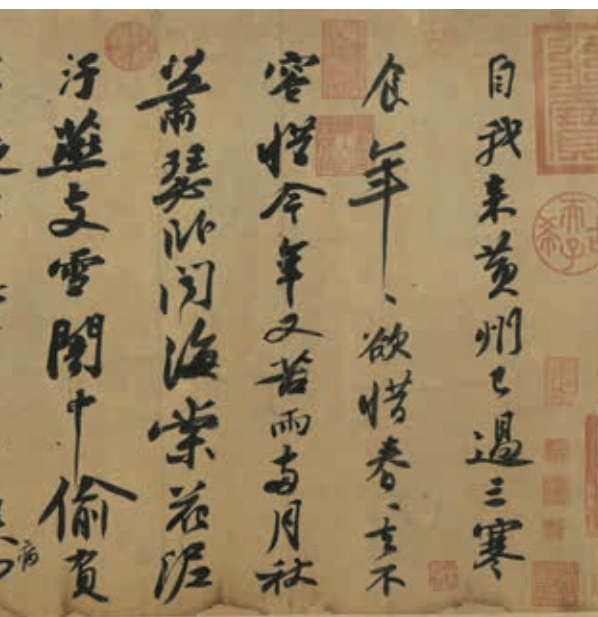 古希天子
自我来黄州已過三寒
食年〻欲惜春〻去不
容惜今年又苦雨兩月秋
蕭瑟卧聞海棠花泥
汙燕支雪闇中偷負
病